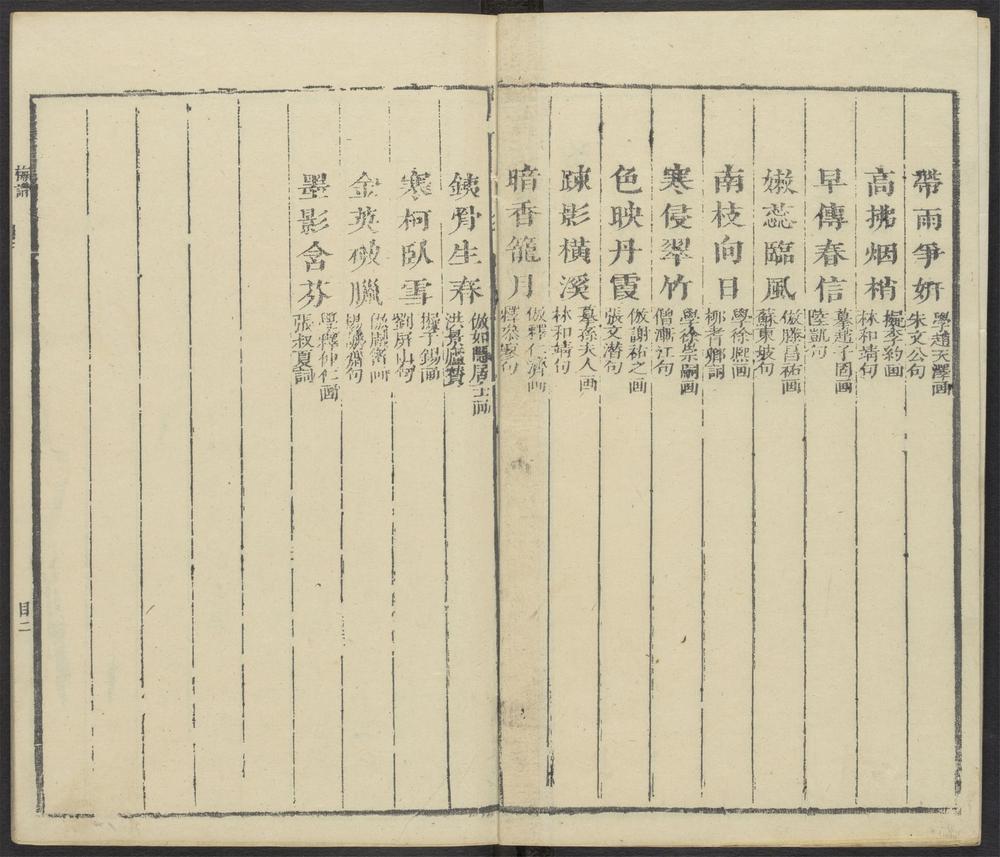 帶雨爭妍
學趙天澤画
朱文公句
高拂烟梢
擬李約画
林和靖句
早傳春信
摹趙子固画
陸凱句
嫩蕊臨風
倣滕昌祐画
蘇東坡句
南枝向日
學徐熙画
柳耆卿詞
寒侵翠竹
學徐崇嗣画
僧漸江句
色映丹霞
倣謝祐之画
張文潛句
踈影橫溪
摹孫夫人画
林和靖句
暗香籠月
倣釋仁濟画
釋參寥句
鉄骨生春
倣如隱居士画
洪景廬贊
寒柯臥雪
劉屏山句
金英破臘
楊誠齋句
墨影含芬
學釋仲仁画
張叔夏詞
梅譜
目二